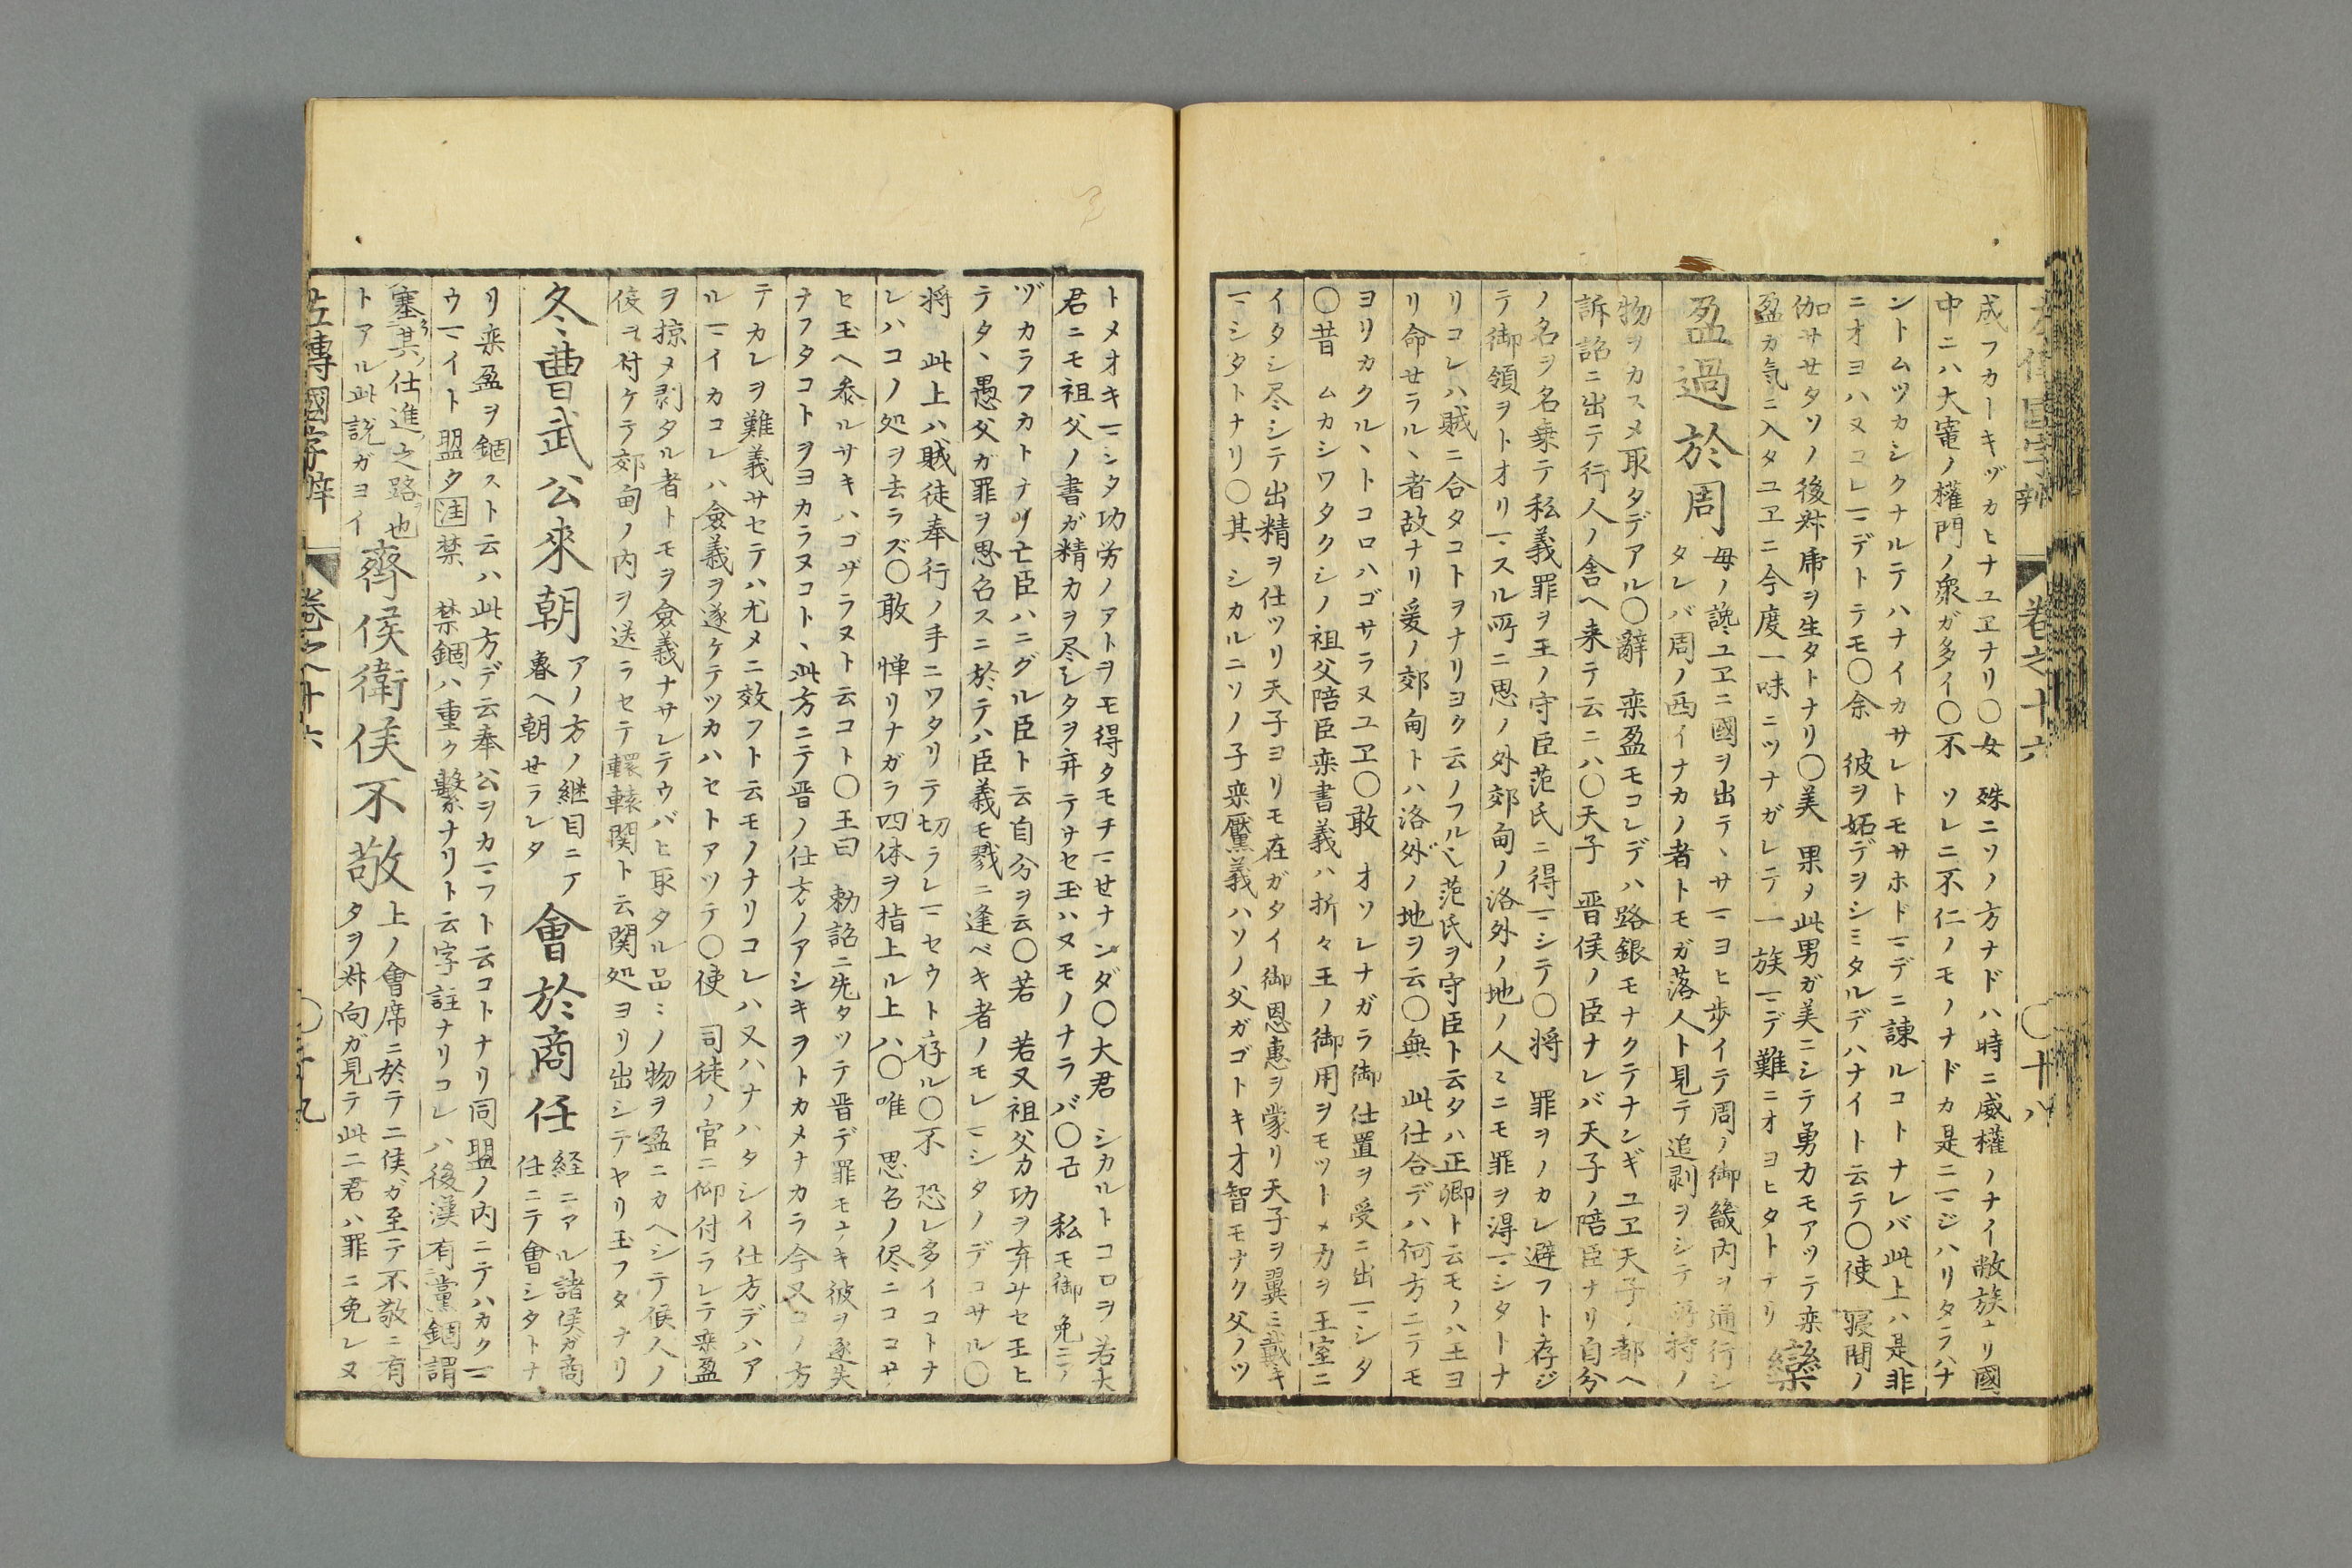 左傳國字辨 巻之十六 〇十八
成フカーキヅカヒナユヱナリ〇女 殊ニソノ方ナドハ時ニ威權ノナイ敝族ナリ國
中ニハ大竃ノ權門ノ衆ガ多イ〇不 ソレニ不仁ノモノナドカ是ニマジハリタラハナ
ントムツカシクナルテハナイカサレトモサホドマデニ諌ルコトナレバ此上ハ是非
ニオヨハヌコレマデトテモ〇余 彼ヲ妬デヲシミタルデハナイト云テ〇使 寝間ノ
伽サセタソノ後叔乕ヲ生タトナリ〇美 果ヲ此男ガ美ニシテ勇力モアツテ栾
盈カ気ニ入タユヱニ今度一味ニツナガレテ一族マデ難ニオヨヒタトナリ 欒
盈過於周
毎ノ讒ユヱニ國ヲ出テヽサマヨヒ歩イテ周ノ御畿内ヲ通行シ
タレバ周ノ西イナカノ者トモガ落人ト見テ追剥ヲシテ所持ノ
物ヲカスメ取タデアル〇辭 栾盈モコレデハ路銀モナクテナンギユヱ天子ノ都ヘ
訴詔ニ出テ行人ノ舎ヘ来テ云ニハ〇天子 晋侯ノ臣ナレバ天子ノ陪臣ナリ自分
ノ名ヲ名乗テ私義罪ヲ王ノ守臣范氏ニ得マシテ〇将 罪ヲノカレ避フト存ジ
テ御領ヲトオリマスル所ニ思ノ外郊甸ノ洛外ノ地ノ人々ニモ罪ヲ得マシタトナ
リコレハ賊ニ合タコトヲナリヨク云ノフルシ范氏ヲ守臣ト云タハ正卿ト云モノハ王ヨ
リ命せラルヽ者故ナリ爰ノ郊甸トハ洛外ノ地ヲ云〇無 此仕合デハ何方ニテモ
ヨリカクルヽトコロハゴサラヌユヱ〇敢 オソレナガラ御仕置ヲ受ニ出マシタ
〇昔 ムカシワタクシノ祖父陪臣栾書義ハ折々王ノ御用ヲモツトメ力ヲ王室ニ
イタシ尽シテ出精ヲ仕ツリ天子ヨリモ在ガタイ御恩惠ヲ蒙リ天子ヲ翼ミ戴キ
マシタトナリ〇其 シカルニソノ子栾黶義ハソノ父ガゴトキオ智モナク父ノツ
トメオキマシタ功労ノアトヲモ得タモチマせナンダ〇大君 シカルトコロヲ 若大
君ニモ祖父ノ書ガ精力ヲ尽シタヲ弃テサセ玉ハヌモノナラバ〇亡 私モ御免ニア
ヅカラフカトナリ亡臣ハニグル臣ト云自分ヲ云〇若 若又祖父カ功ヲ弃サセ玉ヒ
テタヽ愚父ガ罪ヲ思名スニ於テハ臣義モ戮ニ逢ベキ者ノモレマシタノデコサル〇
将 此上ハ賊徒奉行ノ手ニワタリテ切ラレマセウト存ル〇不 恐レ多イコトナ
レハコノ処ヲ去ラズ〇敢 憚リナガラ四体ヲ指上ル上ハ〇唯 思名ノ侭ニココサ
セ玉ヘ叅ルサキハゴザラヌト云コト〇王曰 勅詔ニ先タツテ晋デ罪モナキ彼ヲ逐失
ナフタコトヲヨカラヌコトヽ此方ニテ晋ノ仕方ノアシキヲトカメナカラ今又コノ方
テカレヲ難義サセテハ尤メニ效フト云モノナリコレハ又ハナハタシイ仕方デハア
ルマイカコレハ僉義ヲ遂ケテツカハセトアツテ〇使 司徒ノ官ニ仰付ラレテ栾盈
ヲ掠メ剥タル者トモヲ僉義ナサレテウバヒ取タル品ミノ物ヲ盈ニカヘシテ候人ノ
侫ヲ付ケテ郊甸ノ内ヲ送ラセテ轘轅関ト云関処ヨリ出シテヤリ玉フタナリ
冬曹武公來朝
アノ方ノ継目ニテ
魯ヘ朝せラレタ
會於商任
経ニアル諸侯ガ商
仕ニテ會シタトナ
リ栾盈ヲ錮ストト云ハ此方デ云奉公ヲカマフト云コトナリ同盟ノ内ニテハカクマ
ウマイト盟タ 注 禁 禁錮ハ重ク繋ナリト云字註ナリコレハ後漢有黨錮謂
塞其仕進之路也
トアル此説ガヨイ
齊侯衛侯不敬
上ノ會席ニ於テ二侯ガ至テ不敬ニ有
タヲ叔向ガ見テ此二君ハ罪ニ免レヌ
左傳國字辨 巻之十六 〇十九